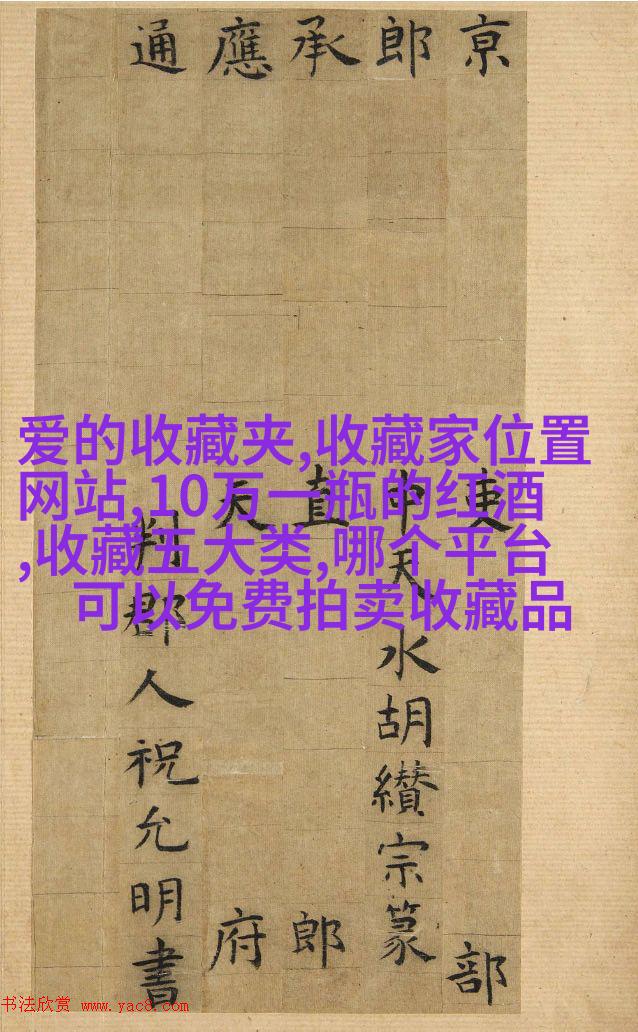 京吏部
郎中天水胡纘宗篆
承直郎
應天府
通判郡人祝允明書
爱的收藏夹,收藏家位置
网站,10万一瓶的红酒
,收藏五大类,哪个平台
可以免费拍卖收藏品
书法欣赏 www.yac8.com